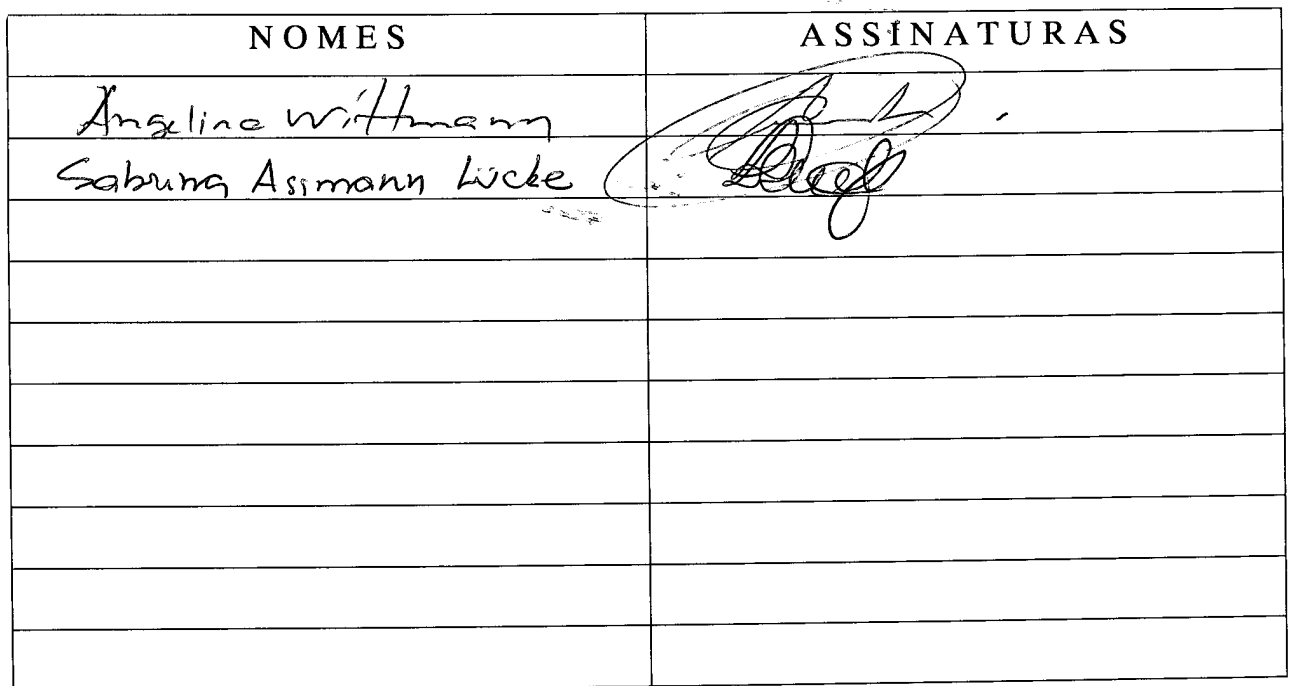 NOMES ASSINATURAS
Angelina Wittmann
Sabrina Assmann Lücke